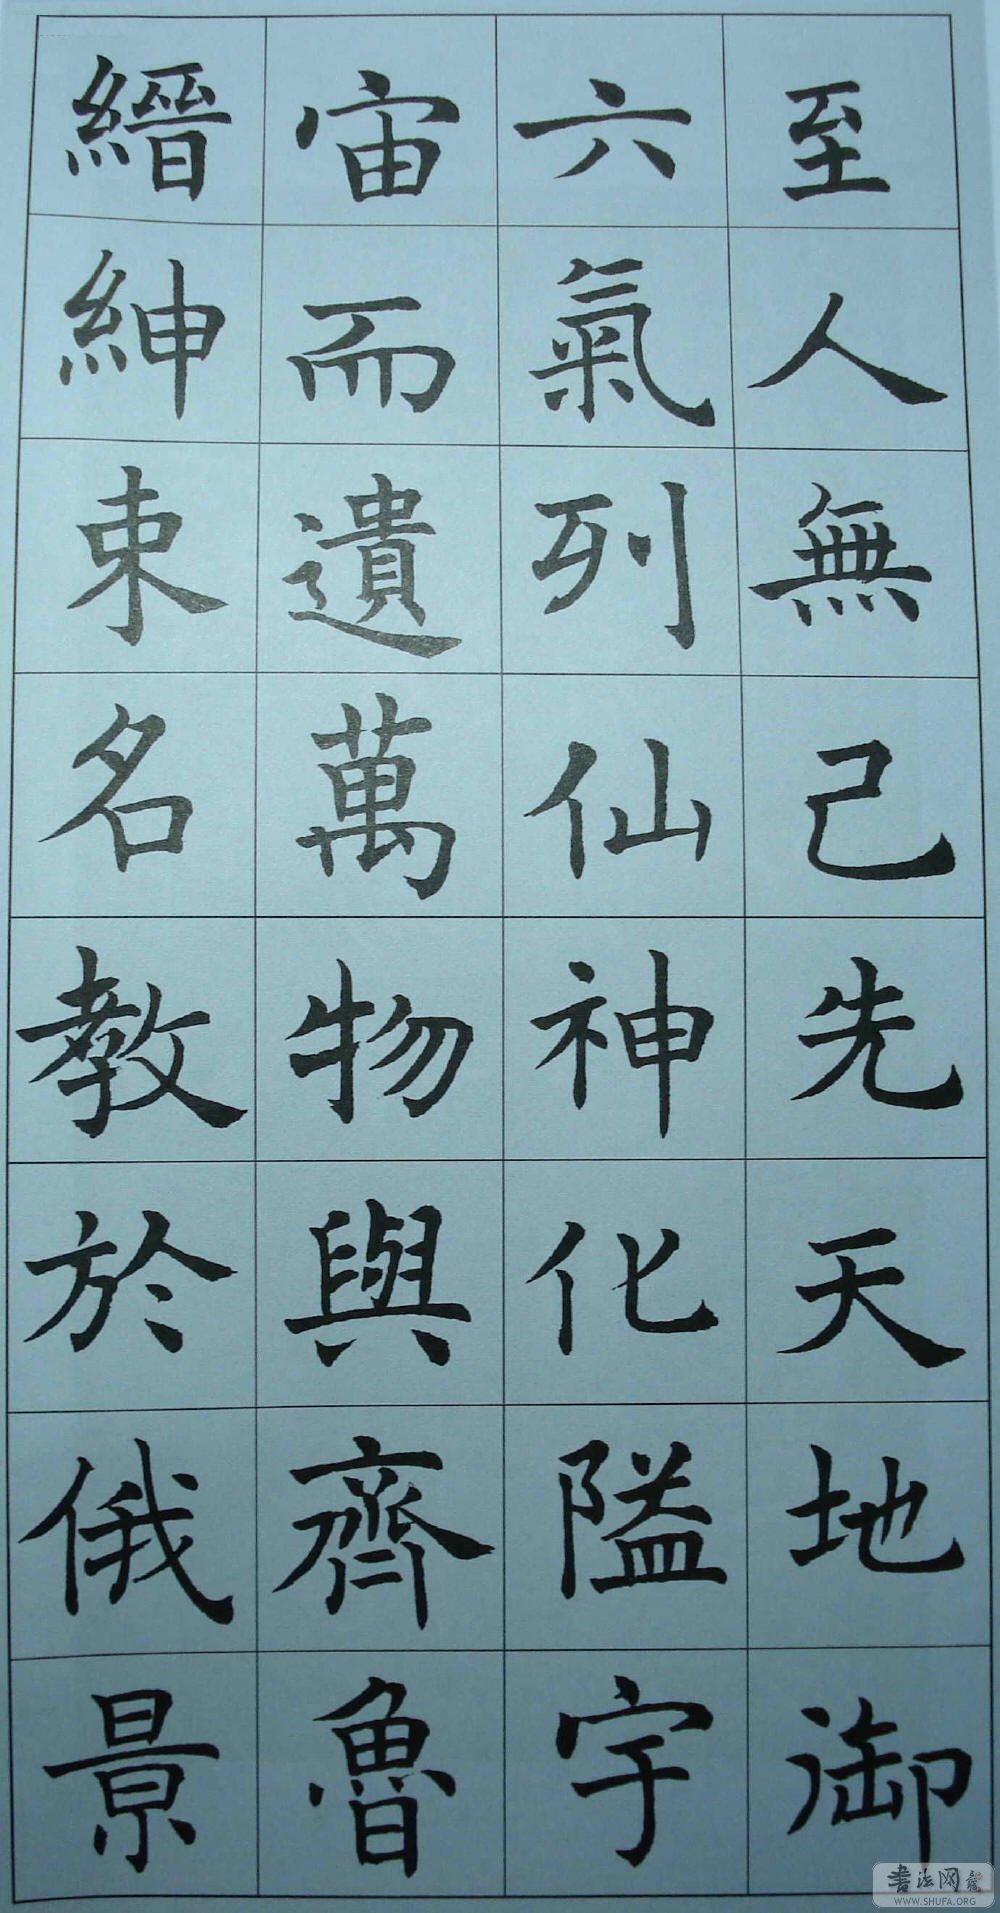 至人無己先天地御
六氣列仙神化隘宇
宙而遺萬物與齊魯
縉紳束名教於俄景
書法网
WWW.SHUFA.ORG